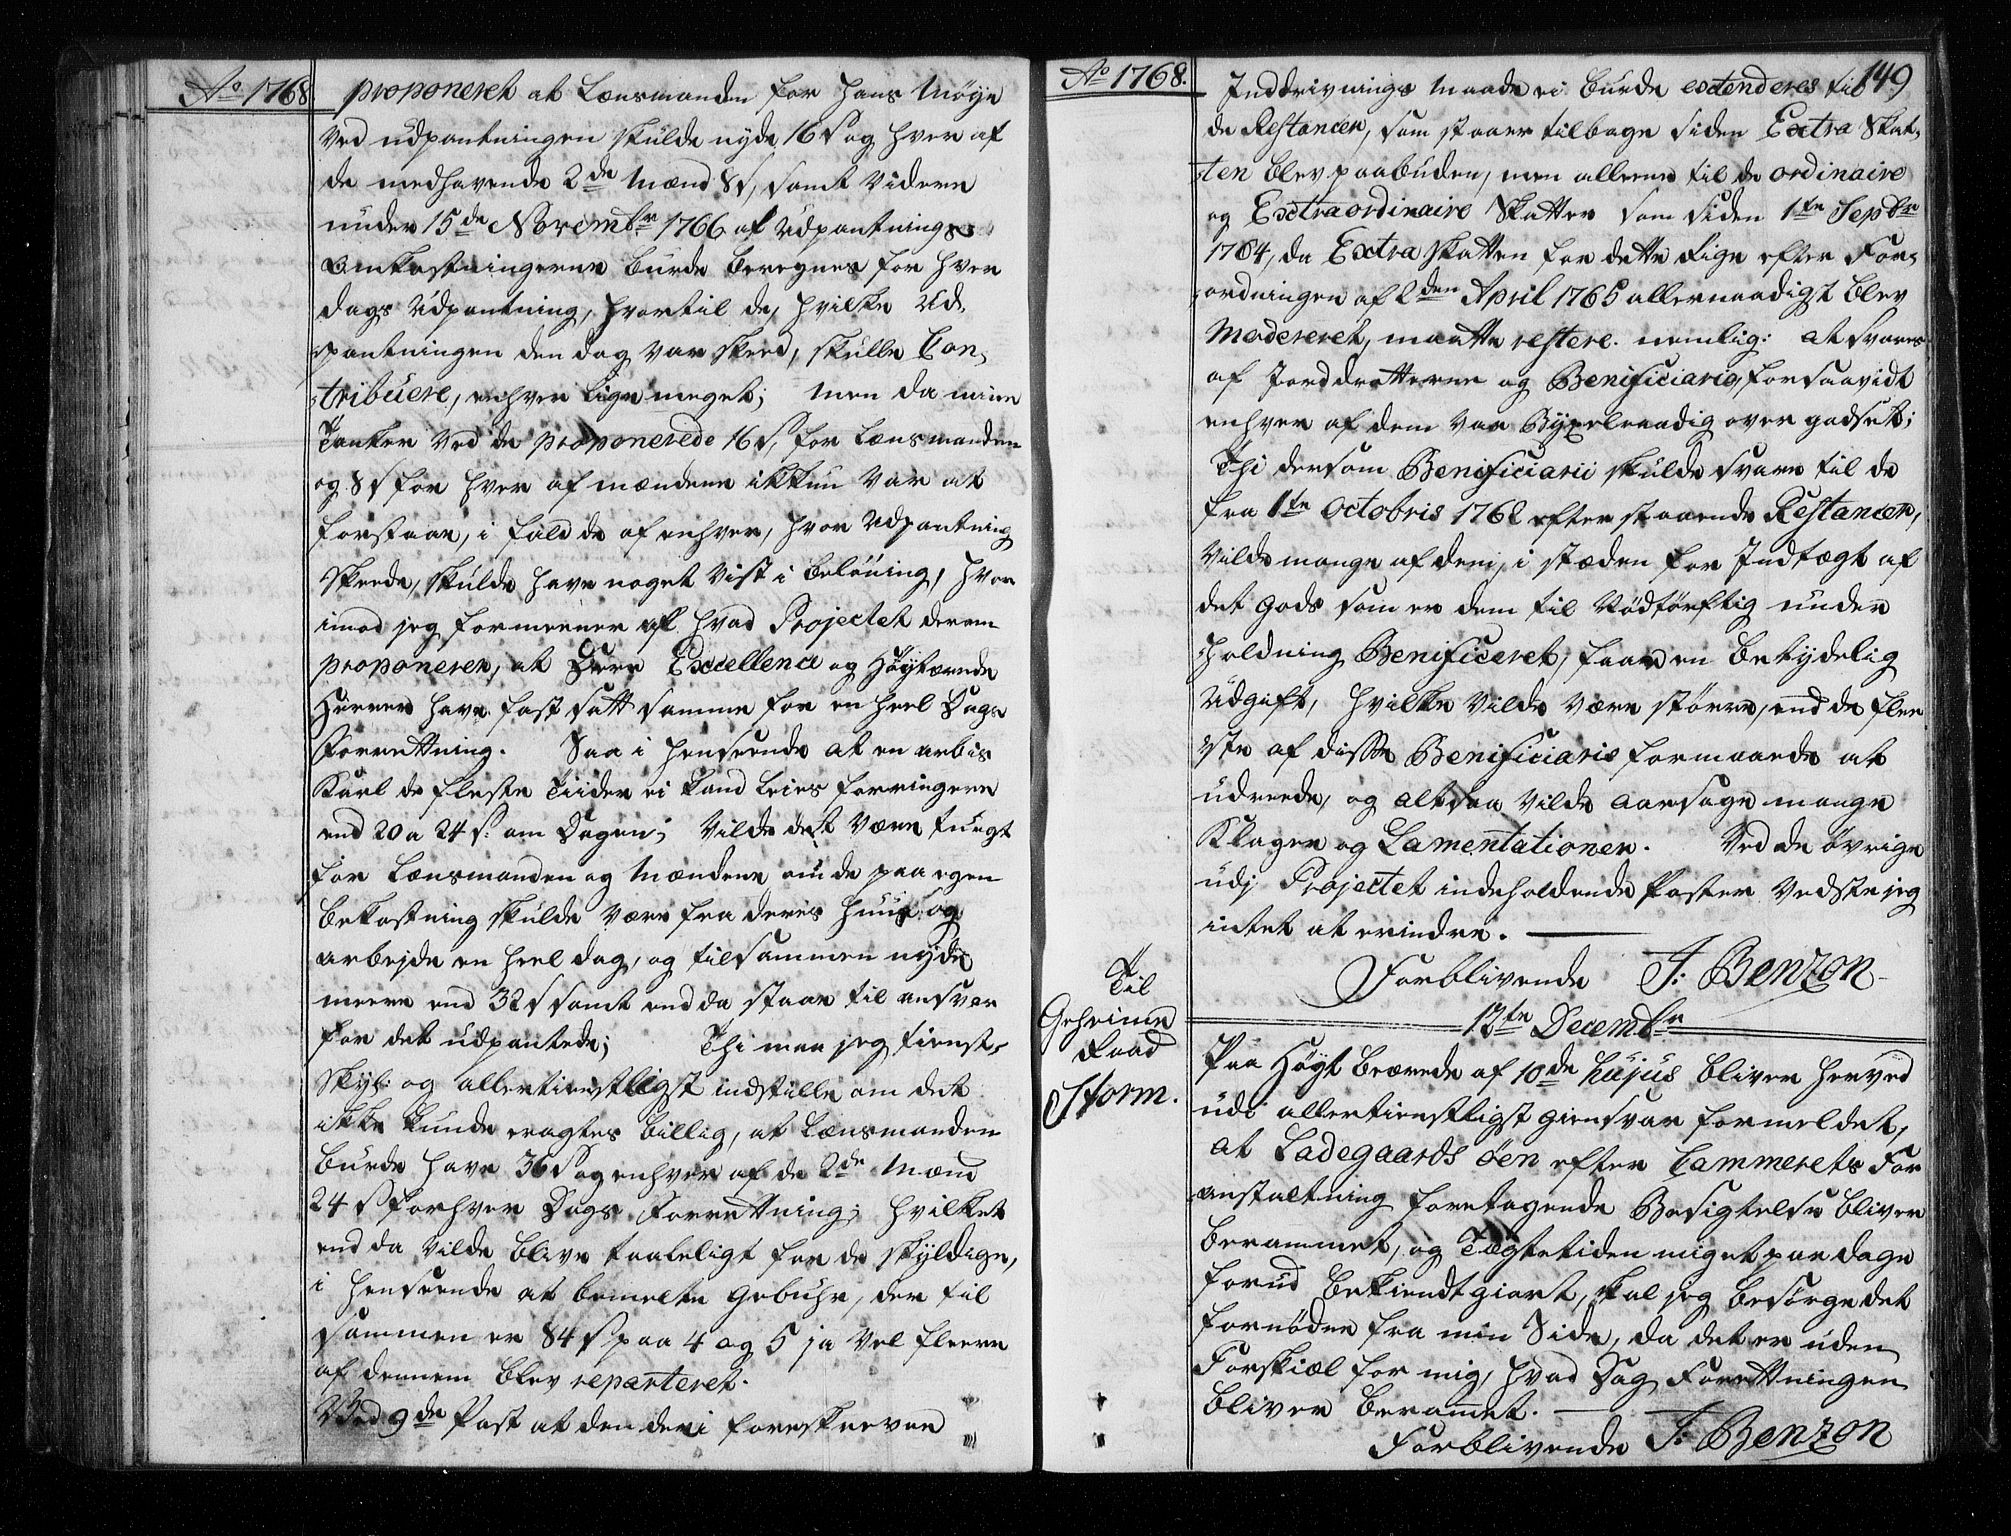 Ao 1768
proponeret at Lænsmanden for hans Møye
ved udpantningen skulde nyde 16 s og hver af
de medhavende 2de Mænd 8 s, samt videre
under 15de Novembr 1766 at Udpantnings
Omkostningerne burde beregnes for hver
dags Udpantning, hvortil de, hvilke Ud-
pantningen den dag var skeed, skulle Con-
tribuere, enhver lige meget; men da mine
Tanker ved de proponerede 16 s, for Lænsmanden
og 8 s for hver af mændene ikkun var at
forstaae, i fald de af enhver, hvor Udpantning
skeede, skulde have noget vist i beløning, hvor
imod jeg formeener af hvad Projectet derom
proponerer, at Deres Excellence og Høytærede
Herrer have fast satt samme for en heel Dags
Forrettning. Saa i henseende at en arbis
Karl de fleste Tiider ei kand leies forringere
end 20 a 24 s. om Dagen; vilde det være tungt
for Lænsmanden og Mændene om de paa egen
bekostning skulde være fra deres huus og
arbejde en heel dag, og tilsammen nyde
meere end 32 s samt end da staae til ansvar
for det udpantede; Thi maa jeg tienst-
skyl: og allertienstligst indstille om det
ikke kunde eragtes billig, at Lænsmanden
burde have 36 s og enhver af de 2de Mænd
24 s for hver Dags Forrettning; hvilket
end da vilde blive taaleligt for de skyldige,
i henseende at bemelte Gebuhr, der til
sammen er 84 s paa 4 og 5 ja vel fleere
af dennem blev reparteret.
Ved 9de Post at den deri foreskrevne
Ao 1768.
149
Inddrivnings Maade ei burde extenderes til
de Restancer, som staaer tilbage siden Extra Skat-
ten blev paabuden, men alleene til de ordinaire
og Extraordinaire Skatter som siden 1te Sepbr
1764, da Extra skatten for dette Rige efter For-
ordningen af 2den April 1765 allernaadigst blev
Modereret, maatte restere. nemlig: at svares
af Jorddrotterne og Benificiarie, forsaavidt
enhver af dem var Byxelraadig over godset;
Thi dersom Benificiarii skulde svare til de
fra 1te Octobris 1762 efterstaaende Restancer,
vilde mange af dem, i stæden for Indtægt af
det Gods som er dem til Nødtørftig under
holdning Benificeret, faae en betydelig
Udgift, hvilke vilde være større, end de flee
ste af disse Benificiarie formaaede at
udreede, og altsaa vilde aarsage mange
Klager og Lamentationer. Ved de øvrige
udj Projectet indeholdende Poster vedste jeg
intet at erindre.
Forblivende J: Benzon
12te Decembr
Til
Geheime
Raad
Storm.
Paa Høyt beærede af 10de hujus bliver herved
udi allertienstligst giensvar formeldet,
at Ladegaards øen efter Cammerets For
anstaltning foretagende Besigtelse bliver
berammet, og Tægtetiden mig et par dage
forud bekiendtgiort, skal jeg besørge det
fornødne fra min Side, da det er uden
Forskiæl for mig, hvad Dag Forrettningen
bliver beramet.
Forblivende J: Benzon